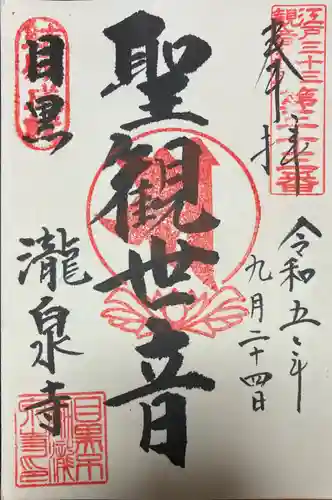 江戸三十三
観音
第三十三番
奉拝
令和五年
九月二十四日
聖観世音
目黒
瀧泉寺